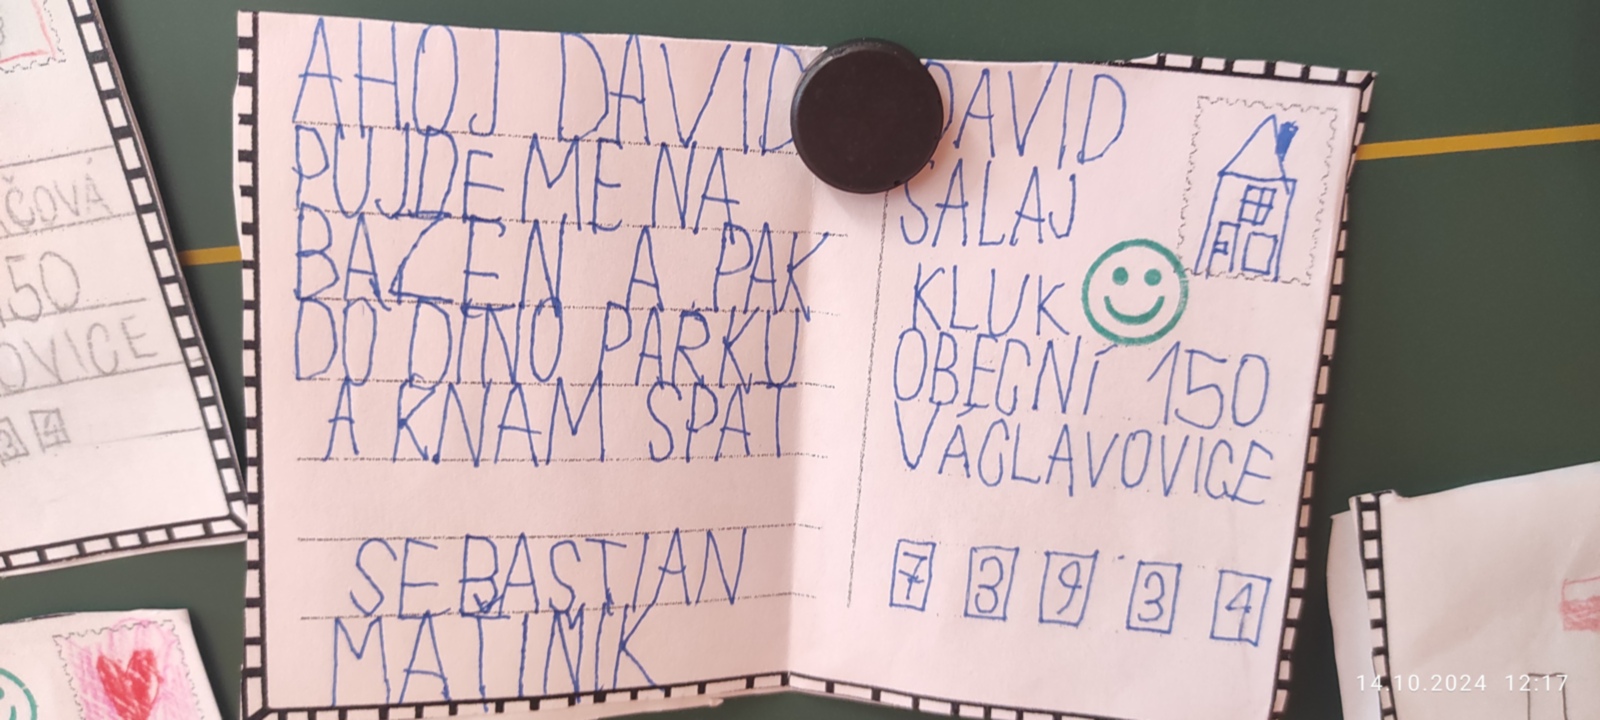 AHOJ DAVID
PUJDEME NA
BAZEN A PAK
DO DINO PARKU
A KNAM SPAT
SEBASTIAN
MATINIK
DAVID
SALAJ
KLUK
OBECNÍ 150
VÁCLAVOVICE
7 3 9 3 4
ČOVÁ
150
OVICE
3 4
14.10.2024 12:17